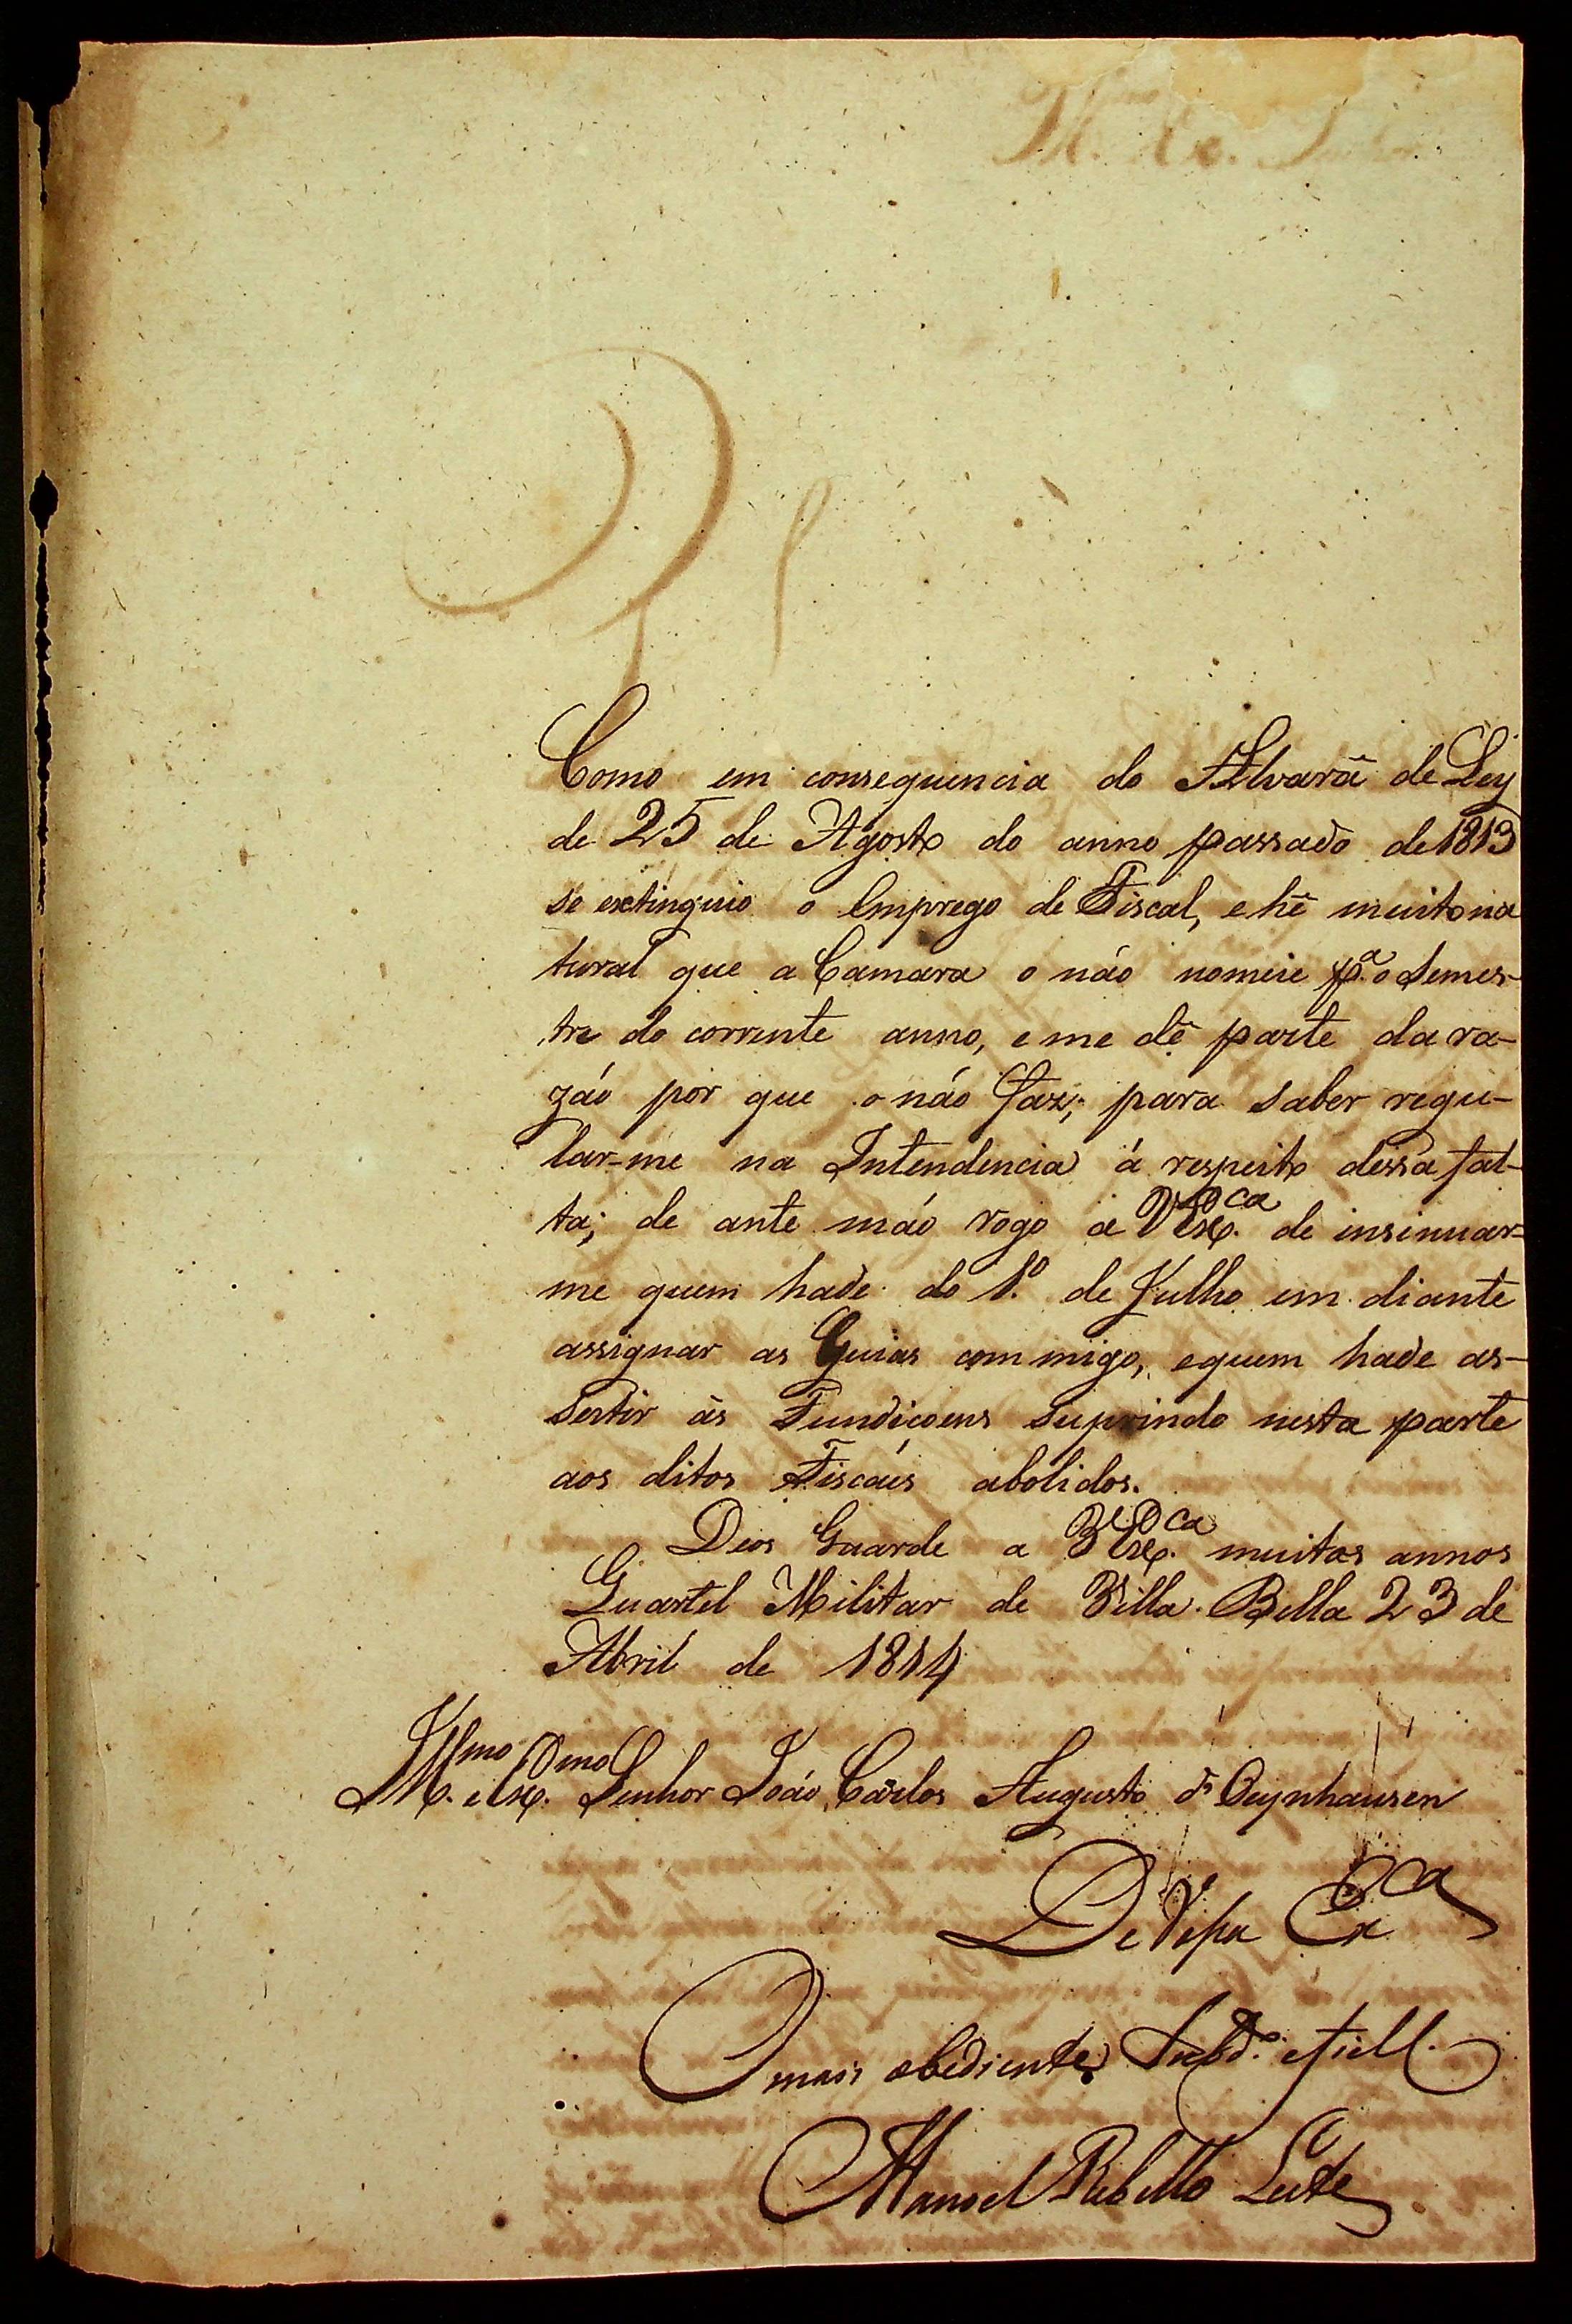 Como em consequencia do Alvará de Ley
de 25 de Agosto do anno passado de 1813
se extinguio o Emprego de Fiscal, e hê muito na
tural que a Camara o não nomeie p.ª o Semes-
tre do corrente anno, e me dê parte da ra-
záo por que o náo faz; para saber regu-
lar-me na Intendencia á respeito dessa fal-
ta; de ante máo rogo a VEx.ca de insinuar-
me quem hade do 1.º de Julho em diante
assignar as Guias com migo, e quem hade as-
sestir às Fundiçoens suprindo nesta parte
aos ditos Fiscáis abolidos.
Deos Guarde a VEx.ca muitos annos
Quartel Militar de Villa Bella 23 de
Abril de 1814
Ill.mo e Ex.mo Senhor Joáo Carlos Augusto d' Oeynhausen
De Vossa Ex.ca
O mais obediente Subd.º e fiel
Manoel Rebello Leite